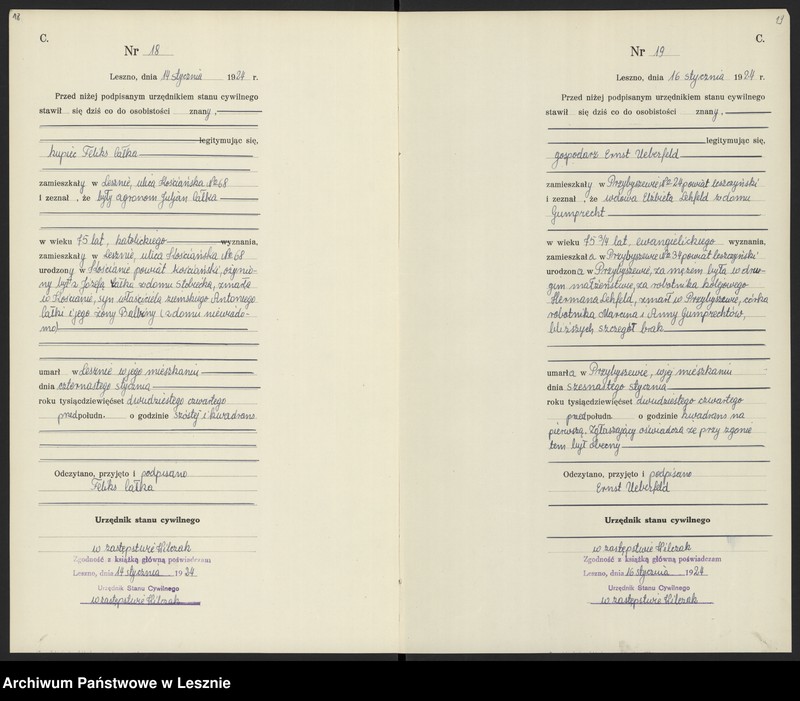 18
C.
Nr 18
Leszno, dnia 14 stycznia 1924 r.
Przed niżej podpisanym urzędnikiem stanu cywilnego
stawił się dziś co do osobistości znany,
legitymując się,
kupiec Feliks Łałka
zamieszkały w Lesznie, ulica Kościańska № 68
i zeznał, że były agronom Juljan Łałka
w wieku 75 lat, katolickiego wyznania,
zamieszkały w Lesznie, ulica Kościańska № 68
urodzony w Kościanie powiat kościański, ożenio-
ny był z Józefą Łałką z domu Stobecką, zmarłą
w Kościanie, syn właściciela ziemskiego Antoniego
Łałki i jego żony Balbiny (z domu niewiado-
mo)
umarł w Lesznie w jego mieszkaniu
dnia czternastego stycznia
roku tysiącdziewięćset dwudziestego czwartego
przedpołudn. o godzinie szóstej i kwadrans
Odczytano, przyjęto i podpisano
Feliks Łałka
Urzędnik stanu cywilnego
w zastępstwie Wilczak
Zgodność z książką główną poświadczam
Leszno, dnia 14 stycznia 1924
Urzędnik Stanu Cywilnego
w zastępstwie Wilczak
19
C.
Nr 19
Leszno, dnia 16 stycznia 1924 r.
Przed niżej podpisanym urzędnikiem stanu cywilnego
stawił się dziś co do osobistości znany,
legitymując się,
gospodarz Ernst Ueberfeld
zamieszkały w Przybyszewie № 24 powiat leszczyński
i zeznał, że wdowa Elżbieta Lehfeld z domu
Gumprecht
w wieku 75 3/4 lat, ewangielickiego wyznania,
zamieszkała w Przybyszewie № 34 powiat leszczyński
urodzona w Przybyszewie, za mężem była w dru-
gim małżeństwie, za robotnika kolejowego
Hermana Lehfeld, zmarł w Przybyszewie, córka
robotnika Marcina i Anny Gumprechtów,
bliższych szczegół brak
umarła w Przybyszewie, w jej mieszkaniu
dnia szesnastego stycznia
roku tysiącdziewięćset dwudziestego czwartego
przedpołudn. o godzinie kwadrans na
pierwszą. Zgłaszający oświadcza że przy zgonie
tem był obecny
Odczytano, przyjęto i podpisano
Ernst Ueberfeld
Urzędnik stanu cywilnego
w zastępstwie Wilczak
Zgodność z książką główną poświadczam
Leszno, dnia 16 stycznia 1924
Urzędnik Stanu Cywilnego
w zastępstwie Wilczak
Archiwum Państwowe w Lesznie